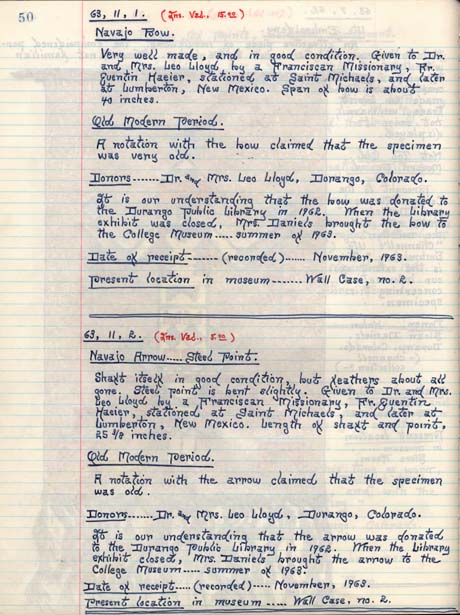 50
63, 11, 1. (Ins. Val., 15.00)
Navajo Bow.
Very well made, and in good condition. Given to Dr.
and Mrs. Leo Lloyd, by a Franciscan Missionary, Fr.
Quentin Haeier, stationed at Saint Michaels, and later
at Lumberton, New Mexico. Span of bow is about
40 inches.
Old Modern Period.
A notation with the bow claimed that the specimen
was very old.
Donors....... Dr. and Mrs. Leo Lloyd, Durango, Colorado.
It is our understanding that the bow was donated to
the Durango Public Library in 1962. When the Library
exhibit was closed, Mrs. Daniels brought the bow to
the College Museum..... summer of 1963.
Date of receipt------ (recorded)...... November, 1963.
Present location in museum ------- Wall Case, no. 2.
63, 11, 2. (Ins. Val., 5.00)
Navajo Arrow..... Steel Point.
Shaft itself in good condition, but feathers about all
gone. Steel point is bent slightly. Given to Dr. and Mrs.
Leo Lloyd by a Franciscan Missionary, Fr. Quentin
Haeier, stationed at Saint Michaels, and later at
Lumberton, New Mexico. Length of shaft and point,
25 7/8 inches.
Old Modern Period.
A notation with the arrow claimed that the specimen
was old.
Donors....... Dr. and Mrs. Leo Lloyd, Durango, Colorado.
It is our understanding that the arrow was donated
to the Durango Public Library in 1962. When the Library
exhibit closed, Mrs. Daniels brought the arrow to the
College Museum..... summer of 1963.
Date of receipt..... (recorded).... November, 1963.
Present location in museum ..... Wall Case, no. 2.